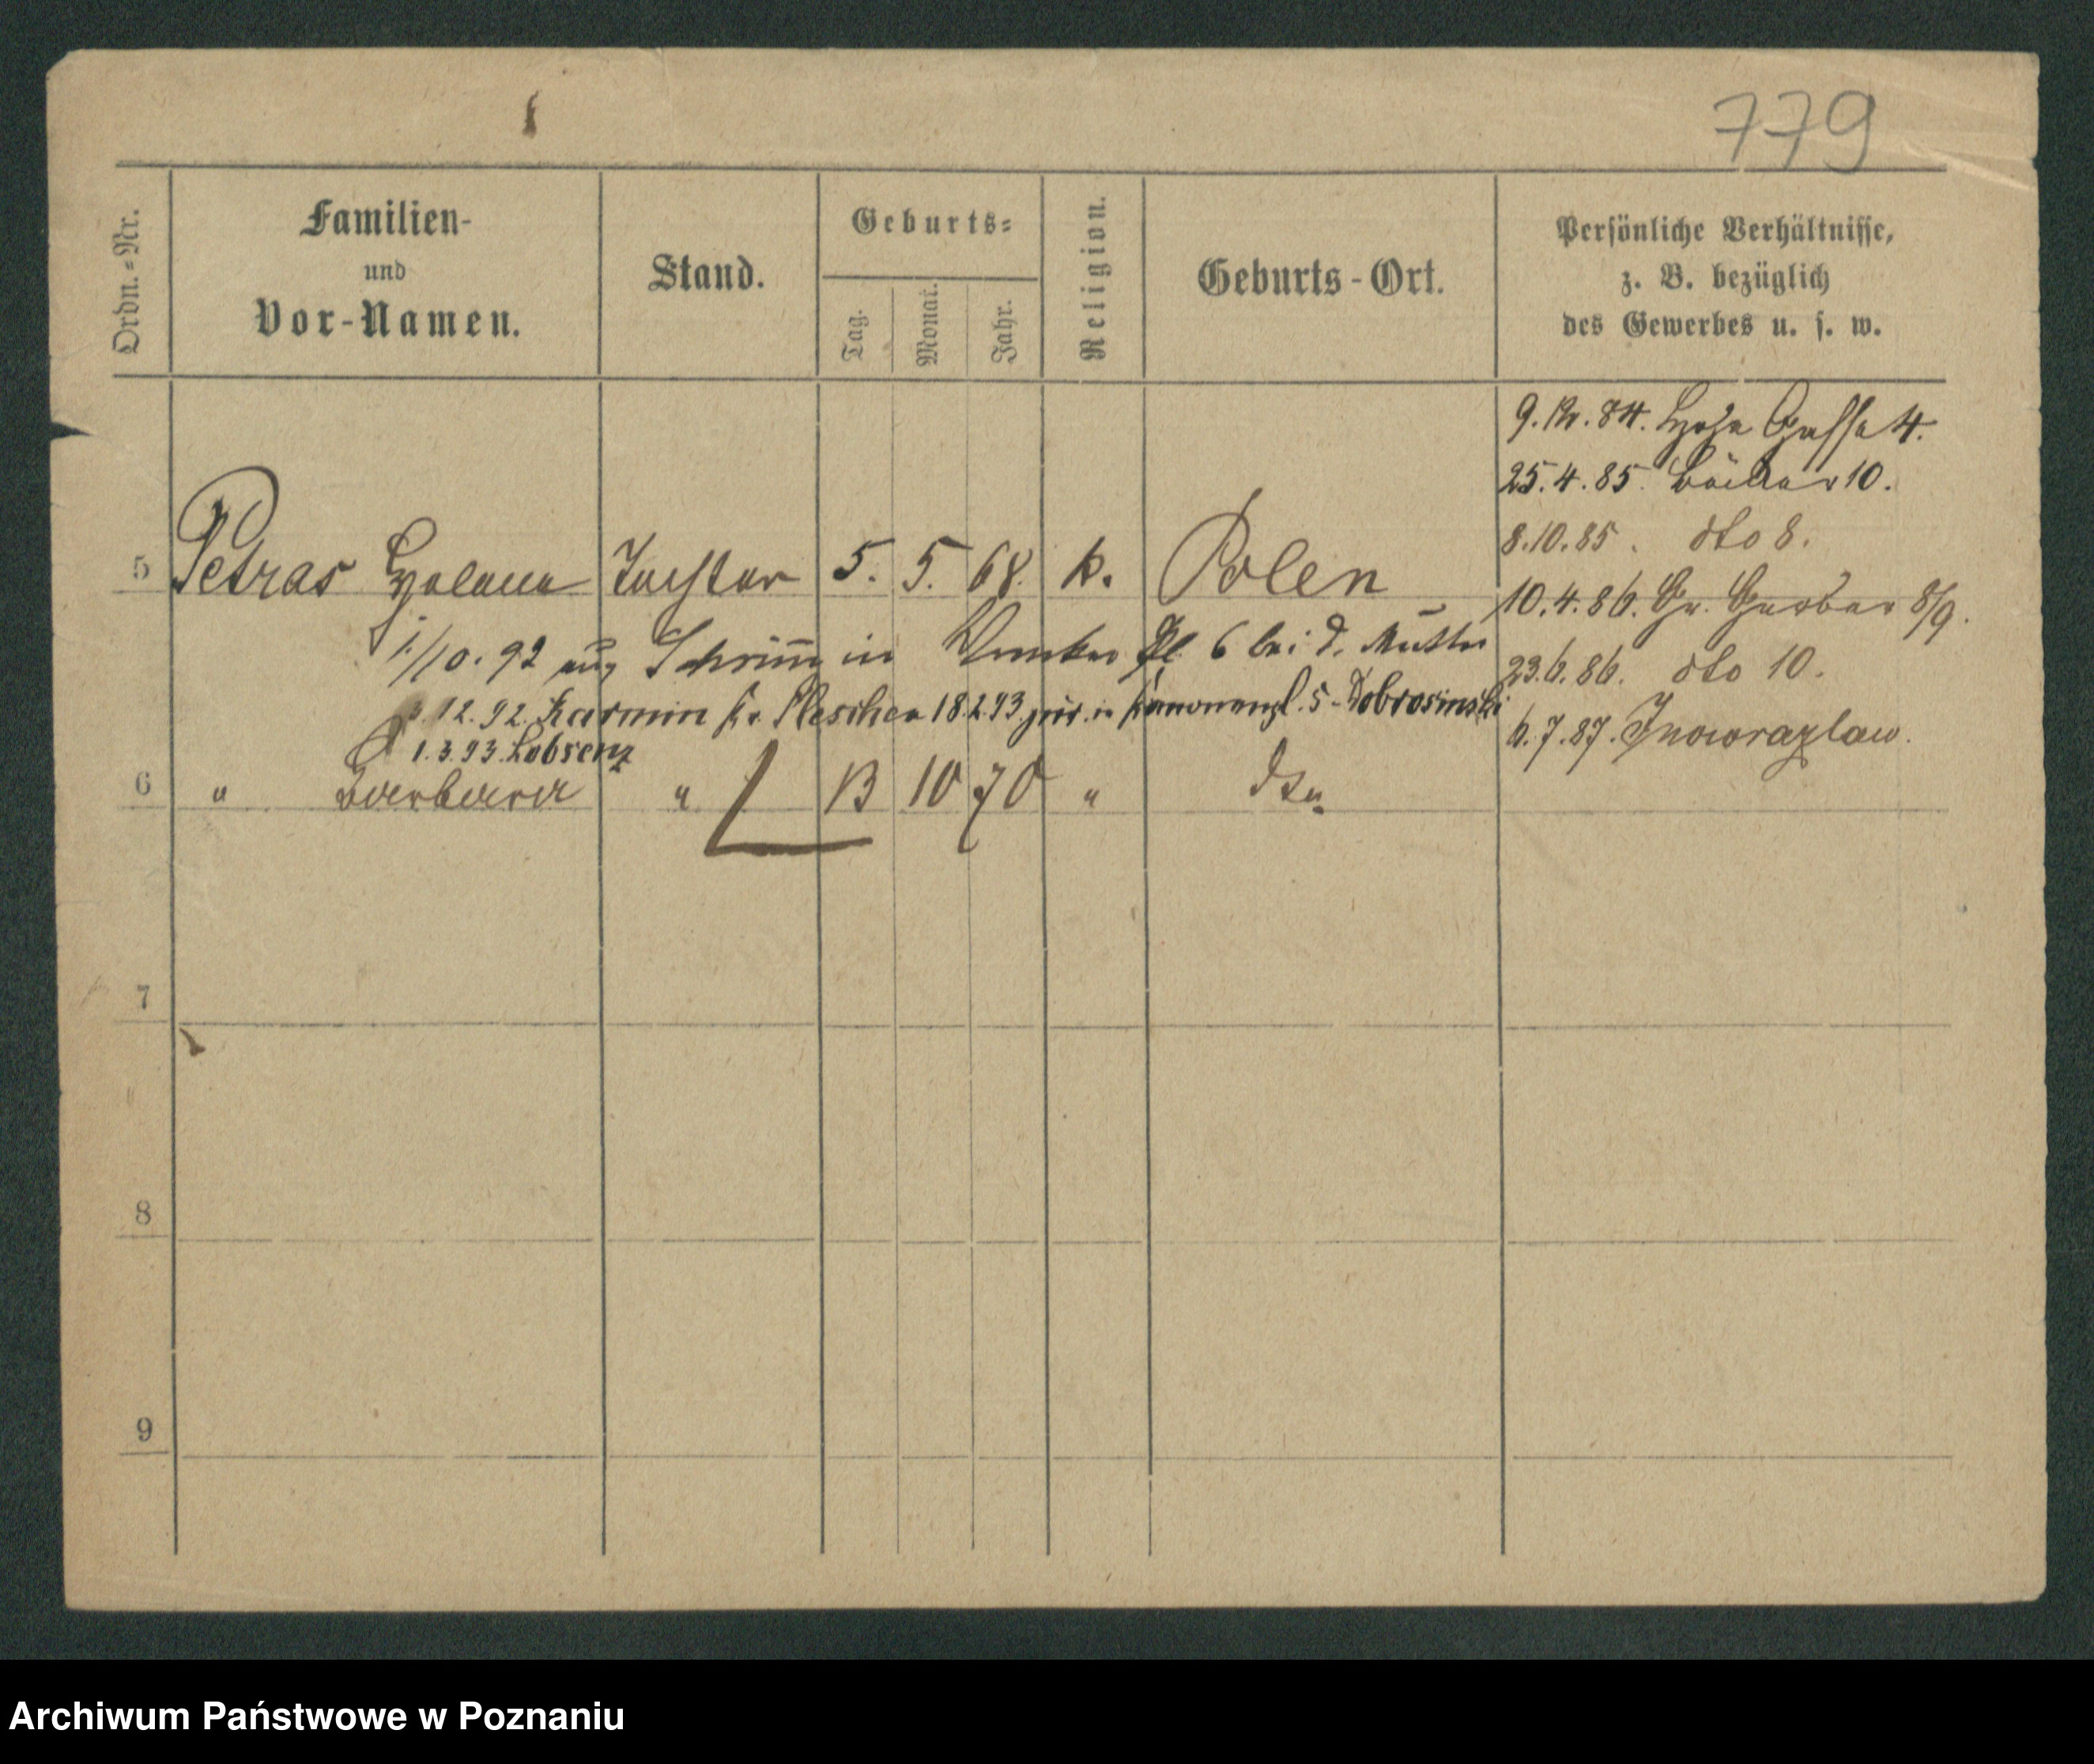 779
Ordn.-Nr.
Familien-
und
Vor-Namen.
Stand.
Geburts-
Tag.
Monat.
Jahr.
Religion.
Geburts-Ort.
Persönliche Verhältnisse,
z. B. bezüglich
des Gewerbes u. s. w.
9. 12. 84. Hohe Gasse 4.
25. 4. 85. Bäcker 10.
8. 10. 85. dto 8.
10. 4. 86. Gr. Gerber 8/9.
23. 6. 86. dto 10.
6. 7. 87. Inowrazlaw.
5 Petras Helene Tochter 5. 5. 68. k. Polen
1/10. 92 aus Schrimm in Pl 6 bei d. Mutter
12. 92. Karmin Kr. Pleschen 18.2.93. zur. in Kanonenpl. 5 - Dobrosinski
1. 3. 93. Lobsenz
6 " Barbara " 13 10 70 " dto
7
8
9
Archiwum Państwowe w Poznaniu